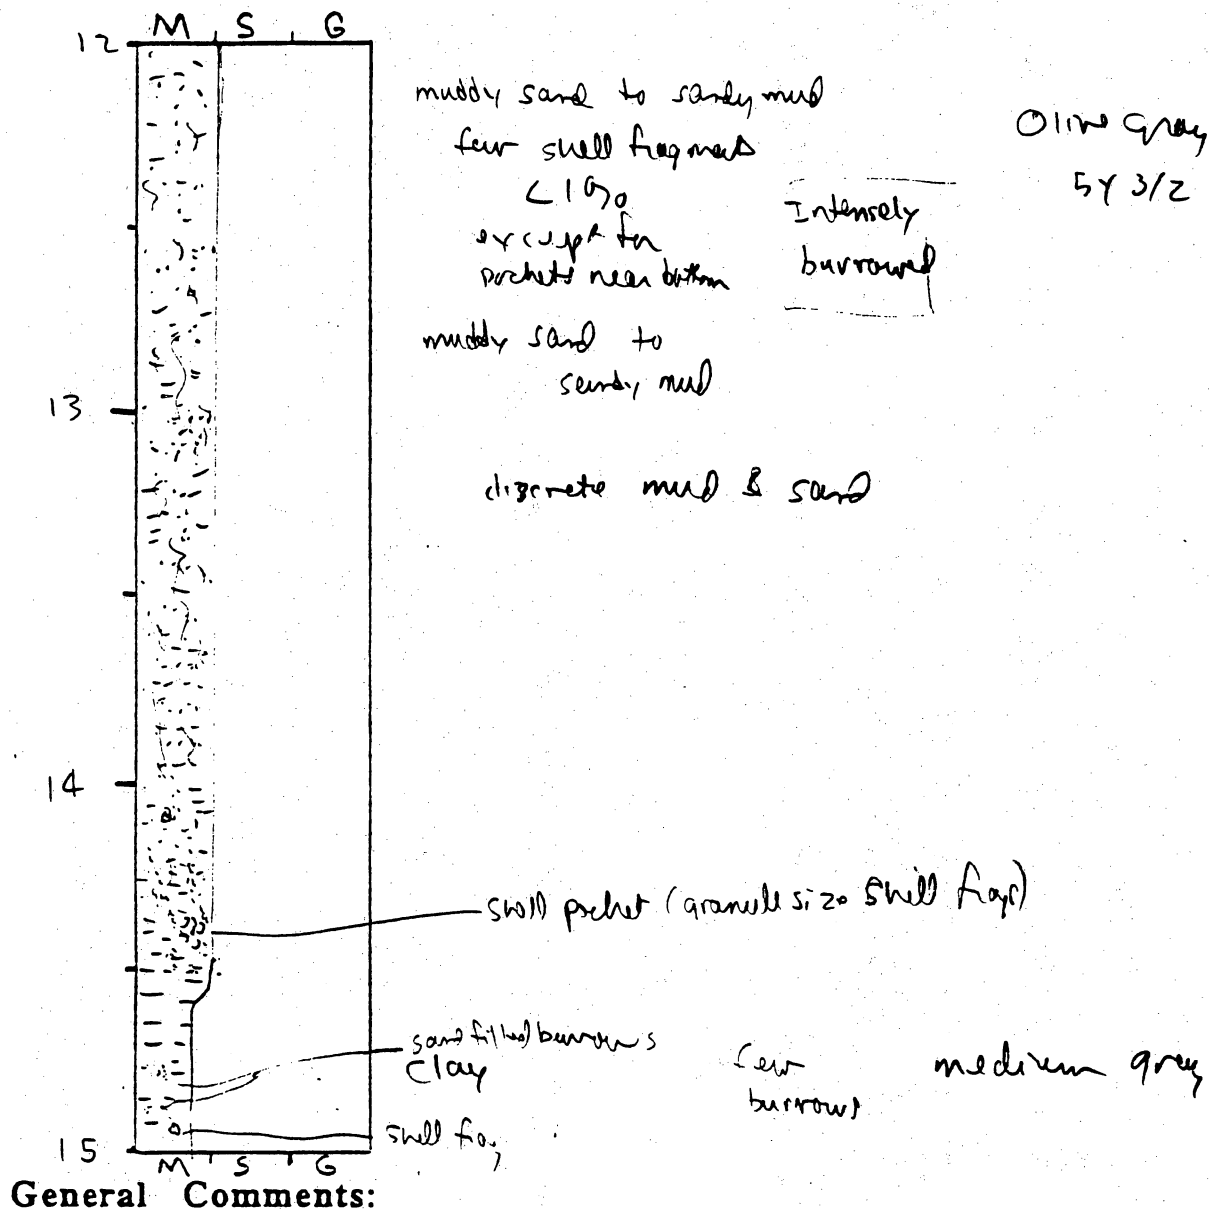 M S G
12
muddy sand to sandy mud
few shell fragments
<1%
except for
pockets near bottom
Intensely
burrowed
Olive Gray
5Y 3/2
muddy sand to
sandy mud
13
discrete mud & sand
14
shell pocket (granule size shell frags)
sand filled burrows
clay
few
burrows
medium gray
shell frag
15
M S G
General Comments: